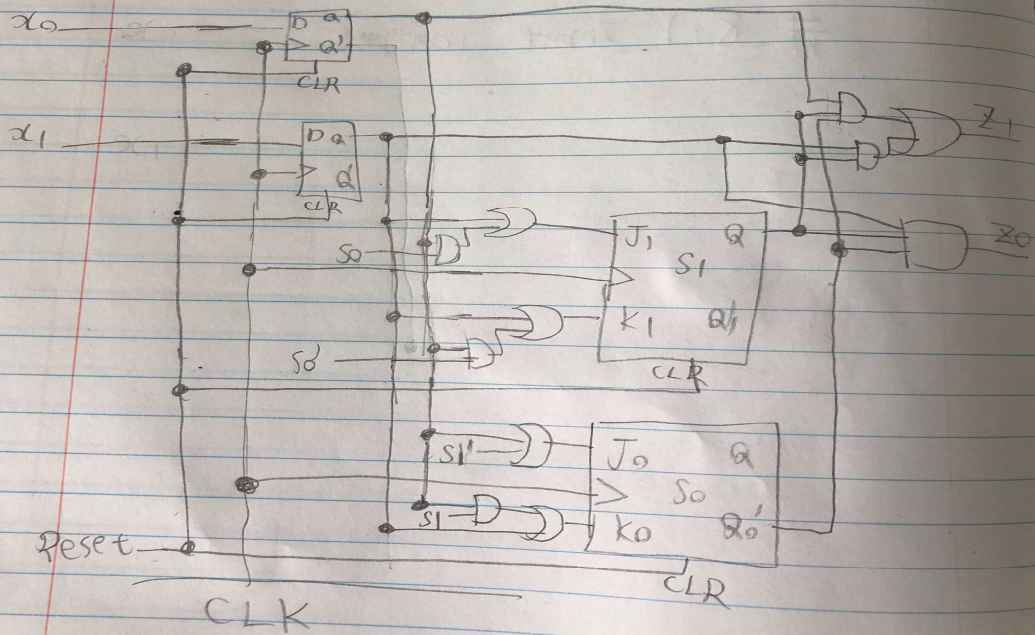 x0 D Q
Q'
CLR
x1 D Q Z1
Q'
CLR
S0 J1 Q Z0
S1
K1 Q1'
S0'
CLR
S1' J0 Q
S0
S1 K0 Q0'
Reset
CLR
CLK